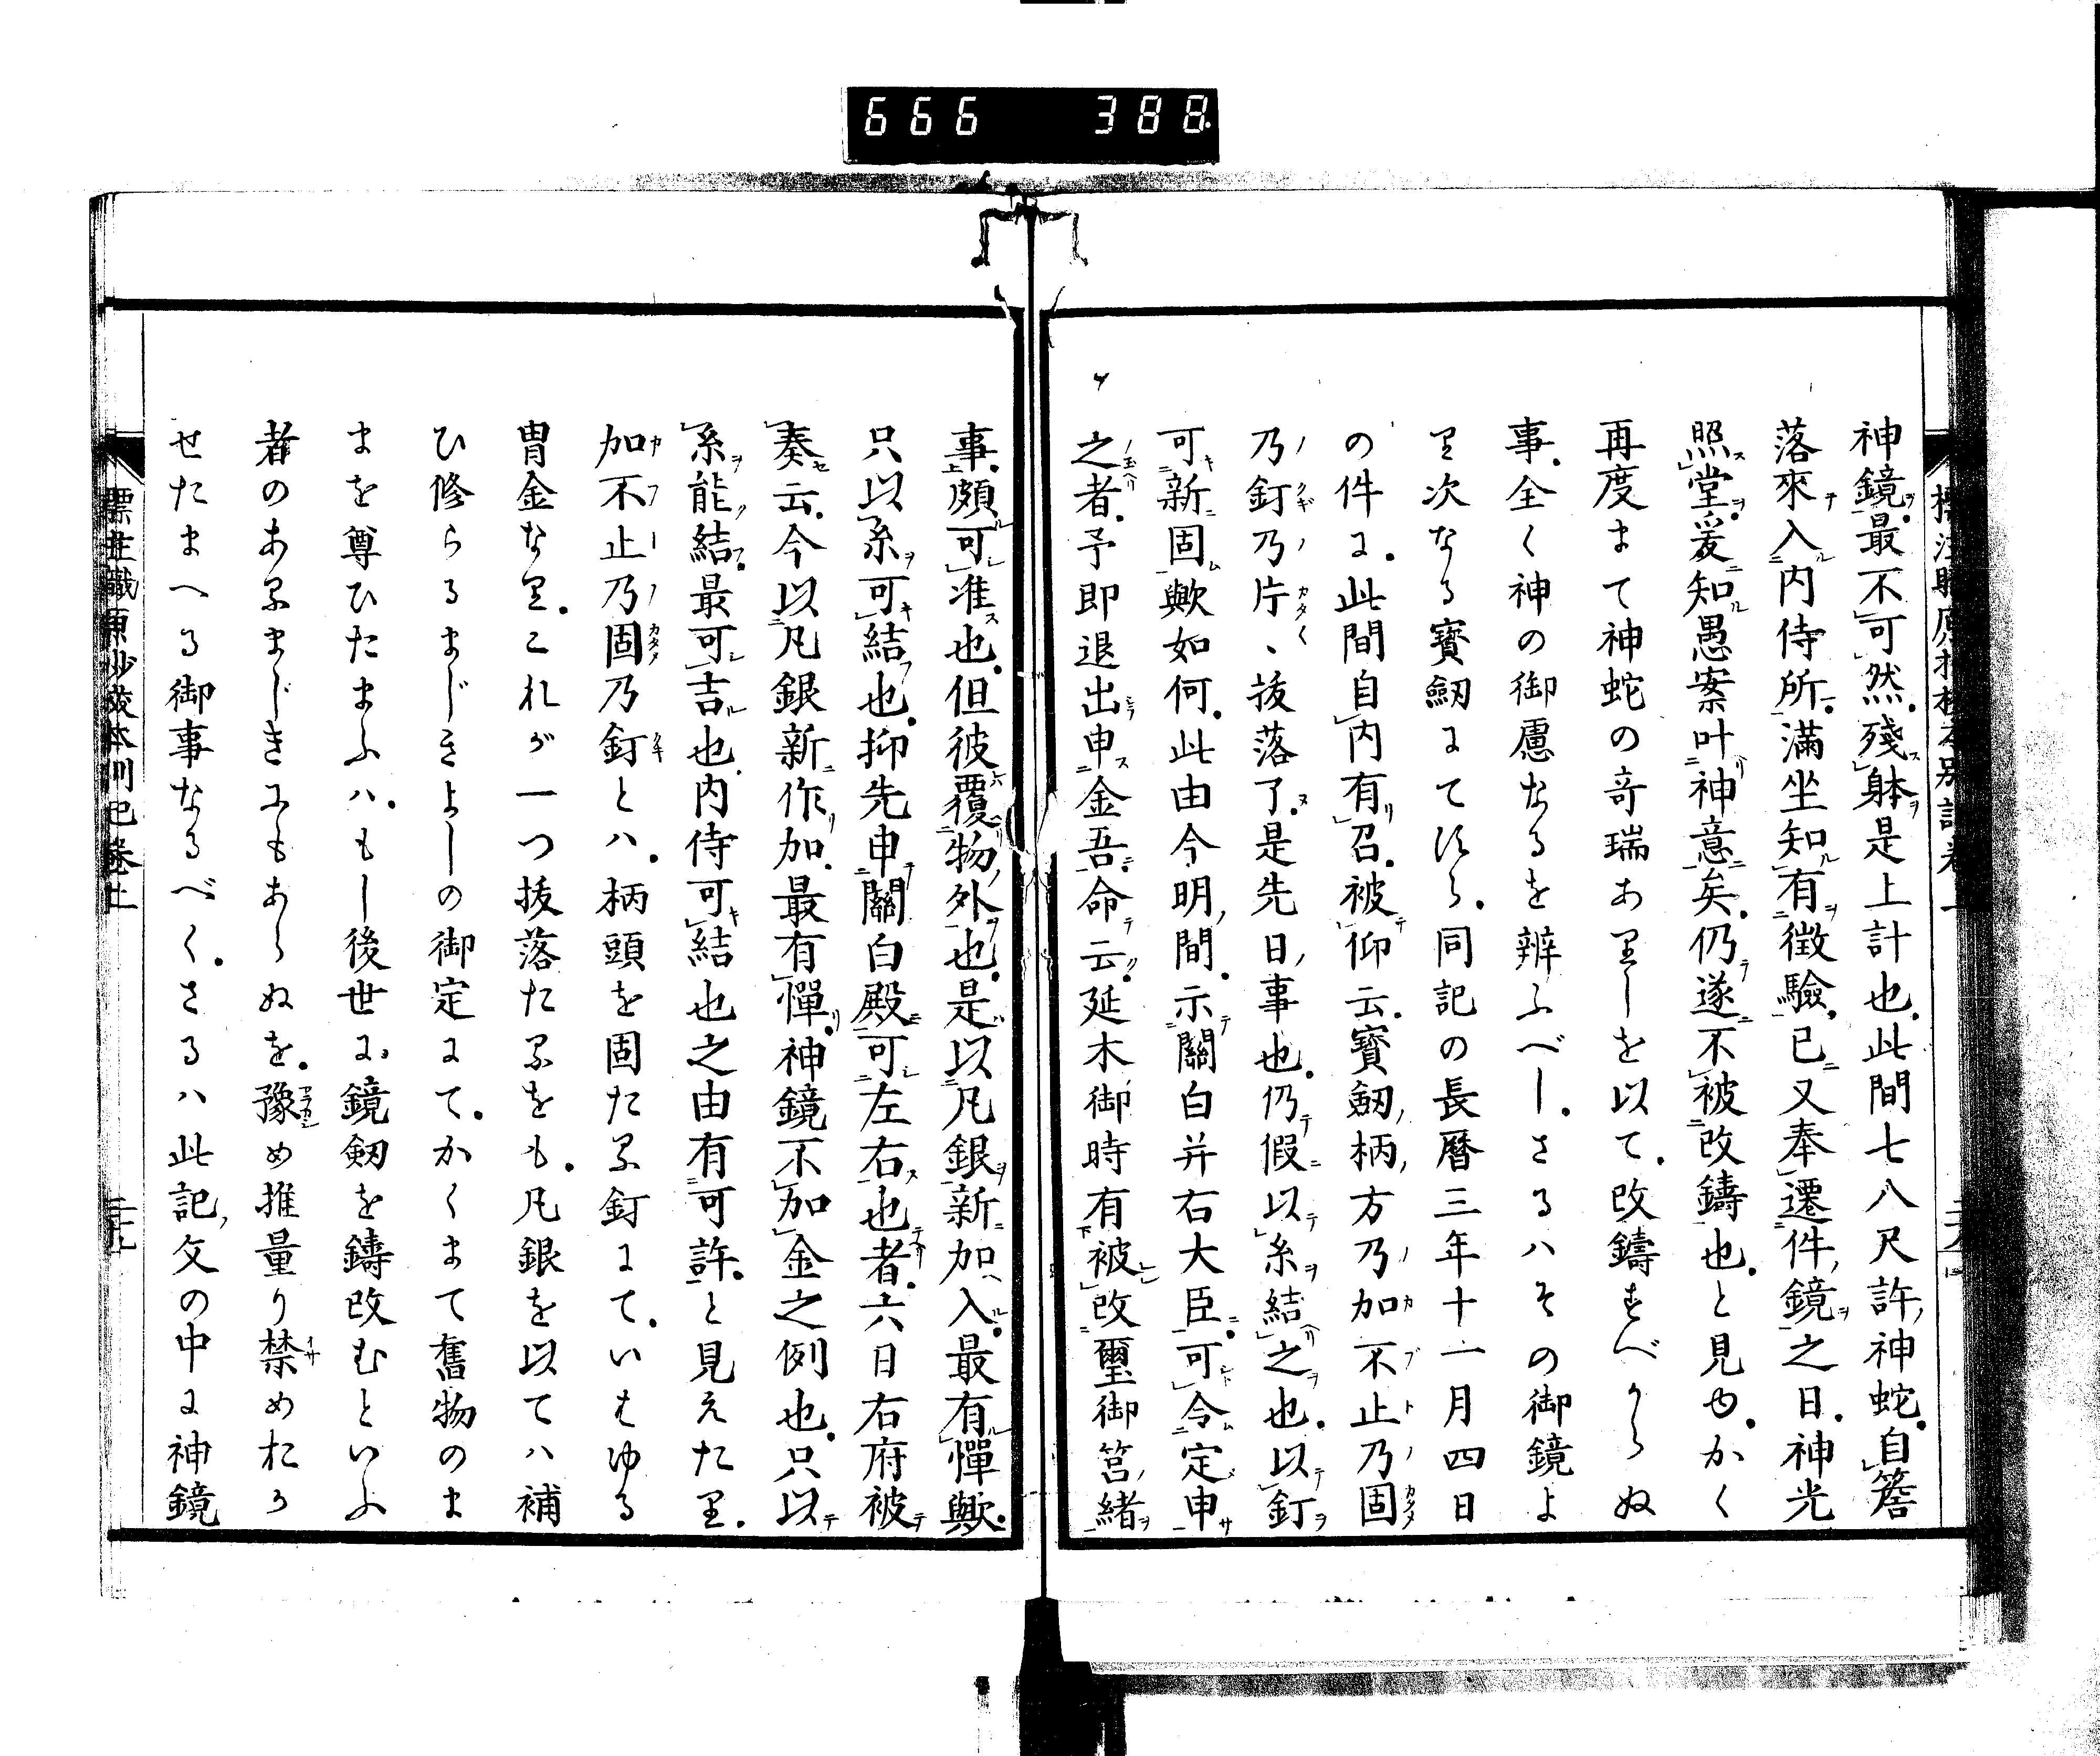 666 388
神鏡最不可然殘躰是上計也此間七八尺許神蛇自簷
落來入內侍所滿坐知有徴驗已又奉遷件鏡之日神光
照堂爰知愚案叶神意矣仍遂不被改鑄也と見ゆかく
再度まて神蛇の奇瑞ありしを以て改鑄すべからぬ
事全く神の御慮なるを辨ふべしさるハその御鏡よ
り次なる寶劔にてすら同記の長曆三年十一月四日
の件に此間自內有召被仰云寶劔柄方乃加不止乃固
乃釘乃片〻拔落了是先日事也仍假以糸結之也以釘
可新固歟如何此由今明間示關白并右大臣可令定申
之者予即退出申金吾命云延木御時有被改璽御筥緒
事頗可准也但彼覆物外也是以凡銀新加入最有憚歟
只以糸可結也抑先申關白殿可左右也者六日右府被
奏云今以凡銀新作加最有憚神鏡不加金之例也只以
糸能結最可吉也內侍可結也之由有可許と見えたり
加不止乃固乃釘とハ柄頭を固たる釘にていはゆる
冑金なりこれが一つ拔落たるをも凡銀を以てハ補
ひ修らるまじきよしの御定にてかくまて舊物のま
まを尊ひたまふハもし後世に鏡劔を鑄改むといふ
者のあるまじきにもあらぬを豫め推量り禁めおか
せたまへる御事なるべくさるハ此記文の中に神鏡
標註職原抄校本別記卷上